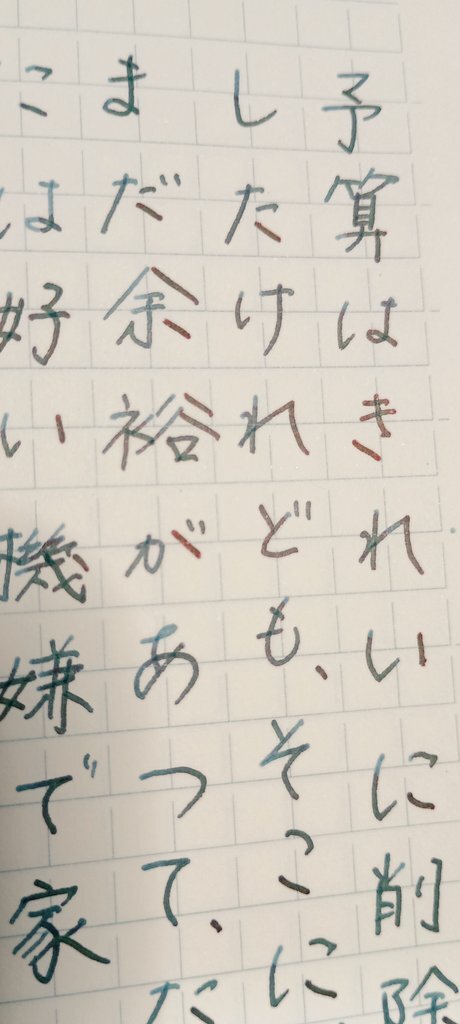 予算はきれいに削除
したけれども、そこに
まだ余裕があつて、だ
こは好い機嫌で家